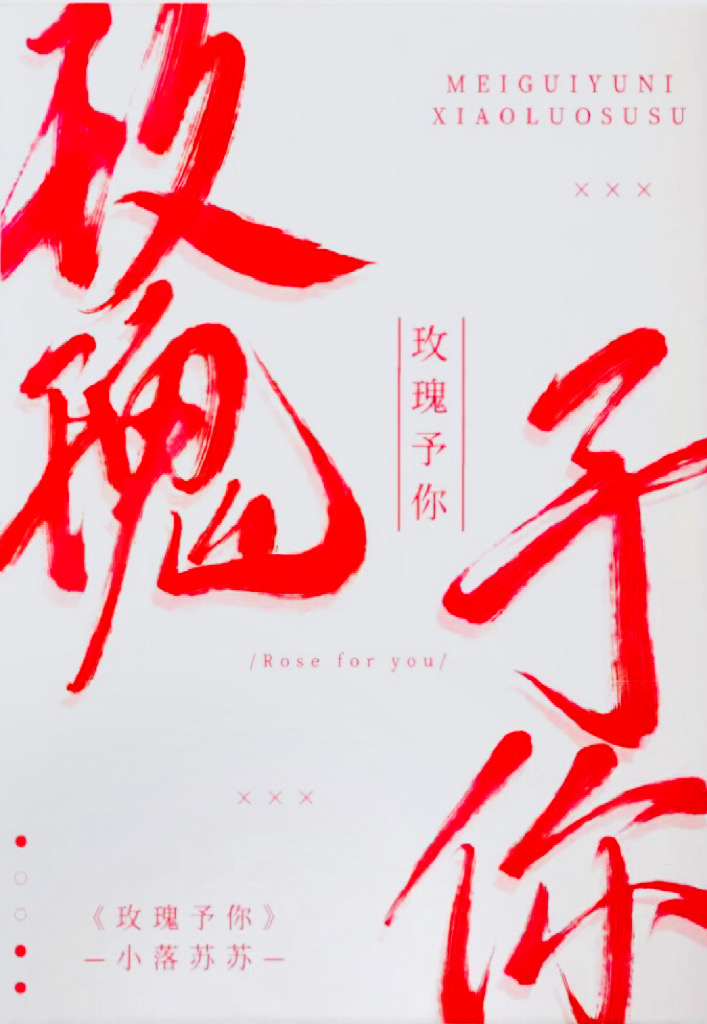 玫瑰
予你
MEIGUIYUNI
XIAOLUOSUSU
×××
玫瑰予你
/Rose for you/
×××
《玫瑰予你》
—小落苏苏—